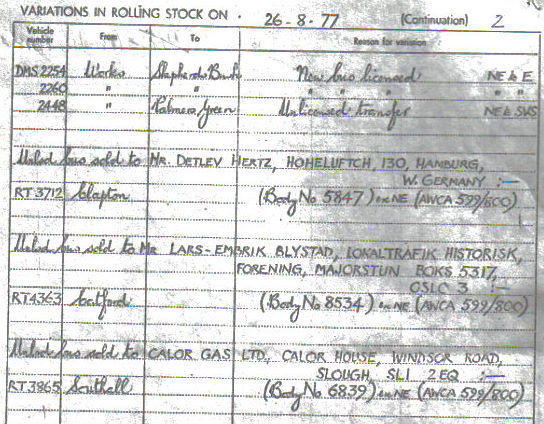 VARIATIONS IN ROLLING STOCK ON 26-8-77 (Continuation) 2
Vehicle number From To Reason for variation
DMS 2254 Works Shepherds Bush New bus licensed NE to E
2260 " " " " " " "
2448 " Palmers Green Unlicensed transfer NE to SVS
Unlcd bus sold to MR. DETLEV HERTZ, HOHELUFTCH, 130, HAMBURG,
W. GERMANY :—
RT 3712 Clapton (Body No 5847) ex NE (AWCA 599/800)
Unlcd bus sold to Mr LARS-EMBRIK BLYSTAD, LOKALTRAFIK HISTORISK,
FORENING, MAJORSTUN BOKS 5317,
OSLO 3 :—
RT4363 Catford (Body No 8534) ex NE (AWCA 599/800)
Unlcd bus sold to CALOR GAS LTD, CALOR HOUSE, WINDSOR ROAD,
SLOUGH, SL1 2EQ :—
RT 3865 Southall (Body No 6839) ex NE (AWCA 599/800)